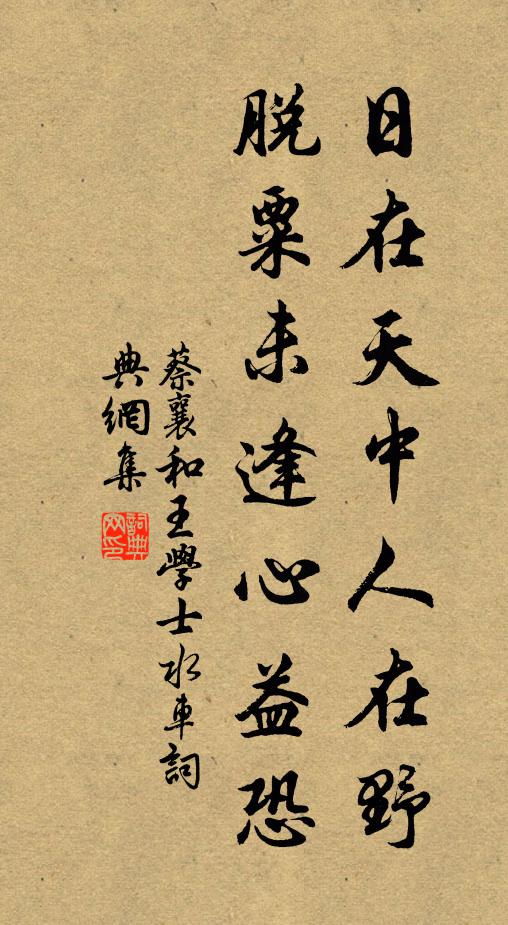 日在天中人在野
脱粟未逢心益恐
蔡襄和王學士水車詞
典網集
詞典網印